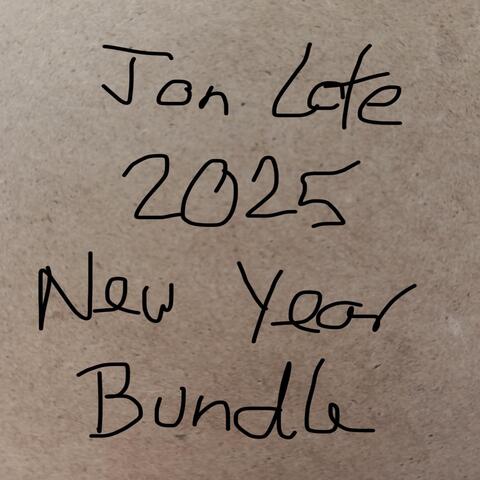 Jan Late
2025
New Year
Bundle